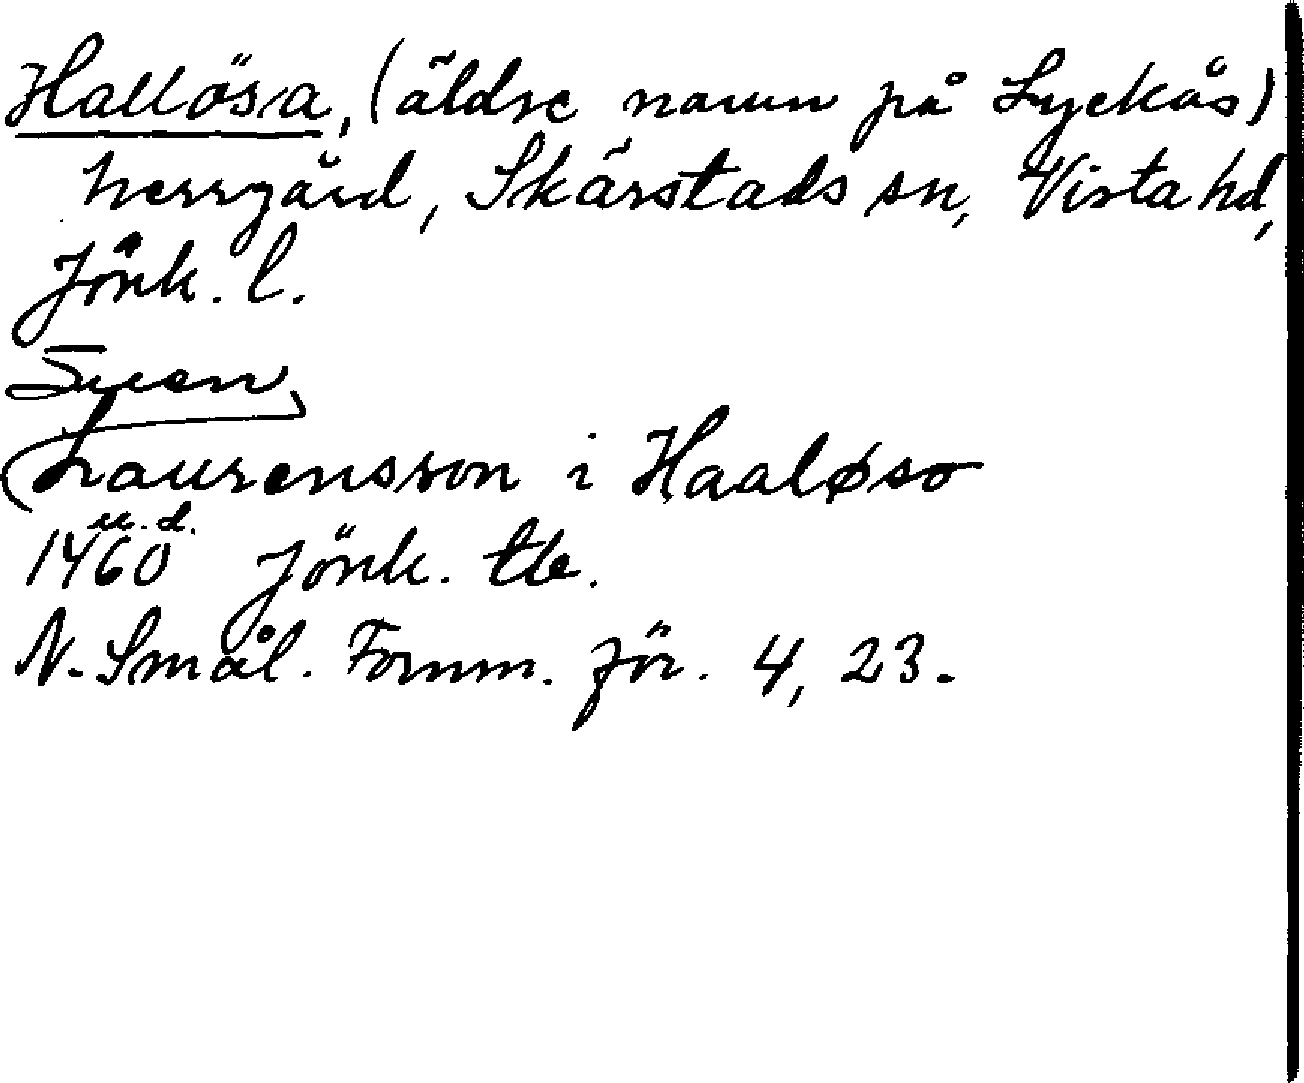 Hallösa, (äldre namn på Lyckås)
herrgård, Skärstads sn, Vista hd,
Jönk. l.
Suen
Laurensson i Haaløso
1460 u.d. Jönk. tb.
N. Smål. Fornm. för. 4, 23.